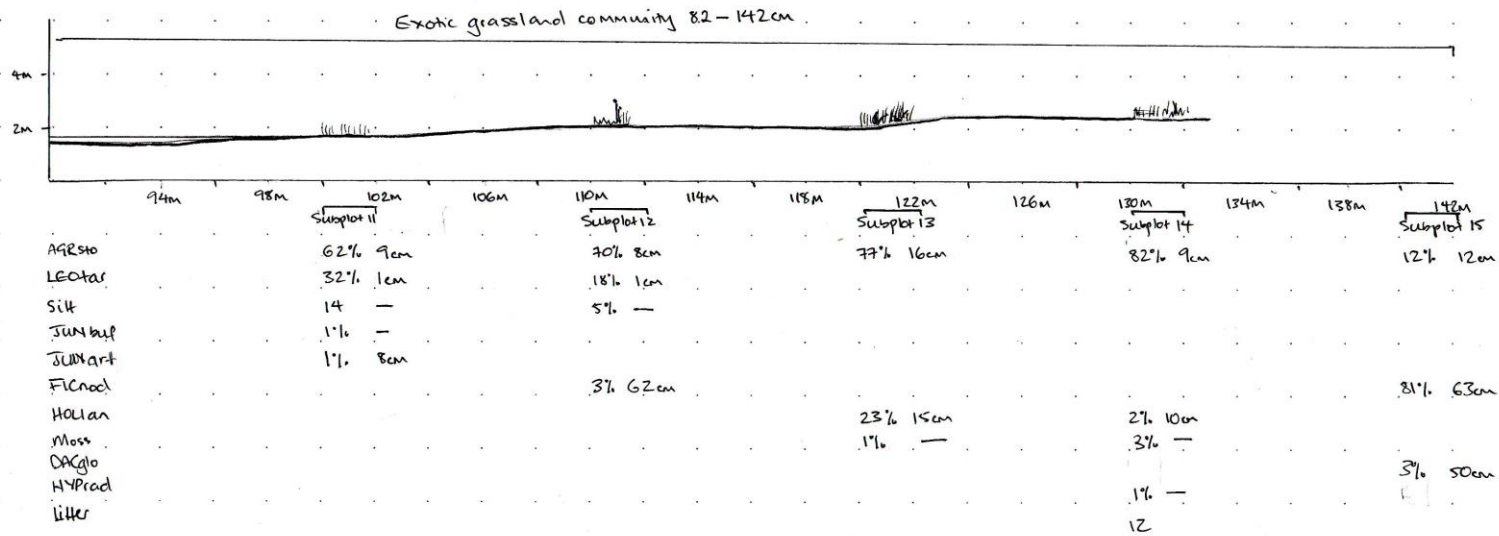 Exotic grassland community 82 – 142cm
4m
2m
94m 98m 102m 106m 110m 114m 118m 122m 126m 130m 134m 138m 142m
Subplot 11 Subplot 12 Subplot 13 Subplot 14 Subplot 15
AGRsto 62% 9cm 70% 8cm 77% 16cm 82% 9cm 12% 12cm
LEOtar 32% 1cm 18% 1cm
Silt 14 — 5% —
JUNbuf 1% —
JUNart 1% 8cm
FICnod 3% 62cm 81% 63cm
HOLlan 23% 15cm 2% 10cm
Moss 1% — 3% —
DACglo 3% 50cm
HYPrad 1% —
Litter 12